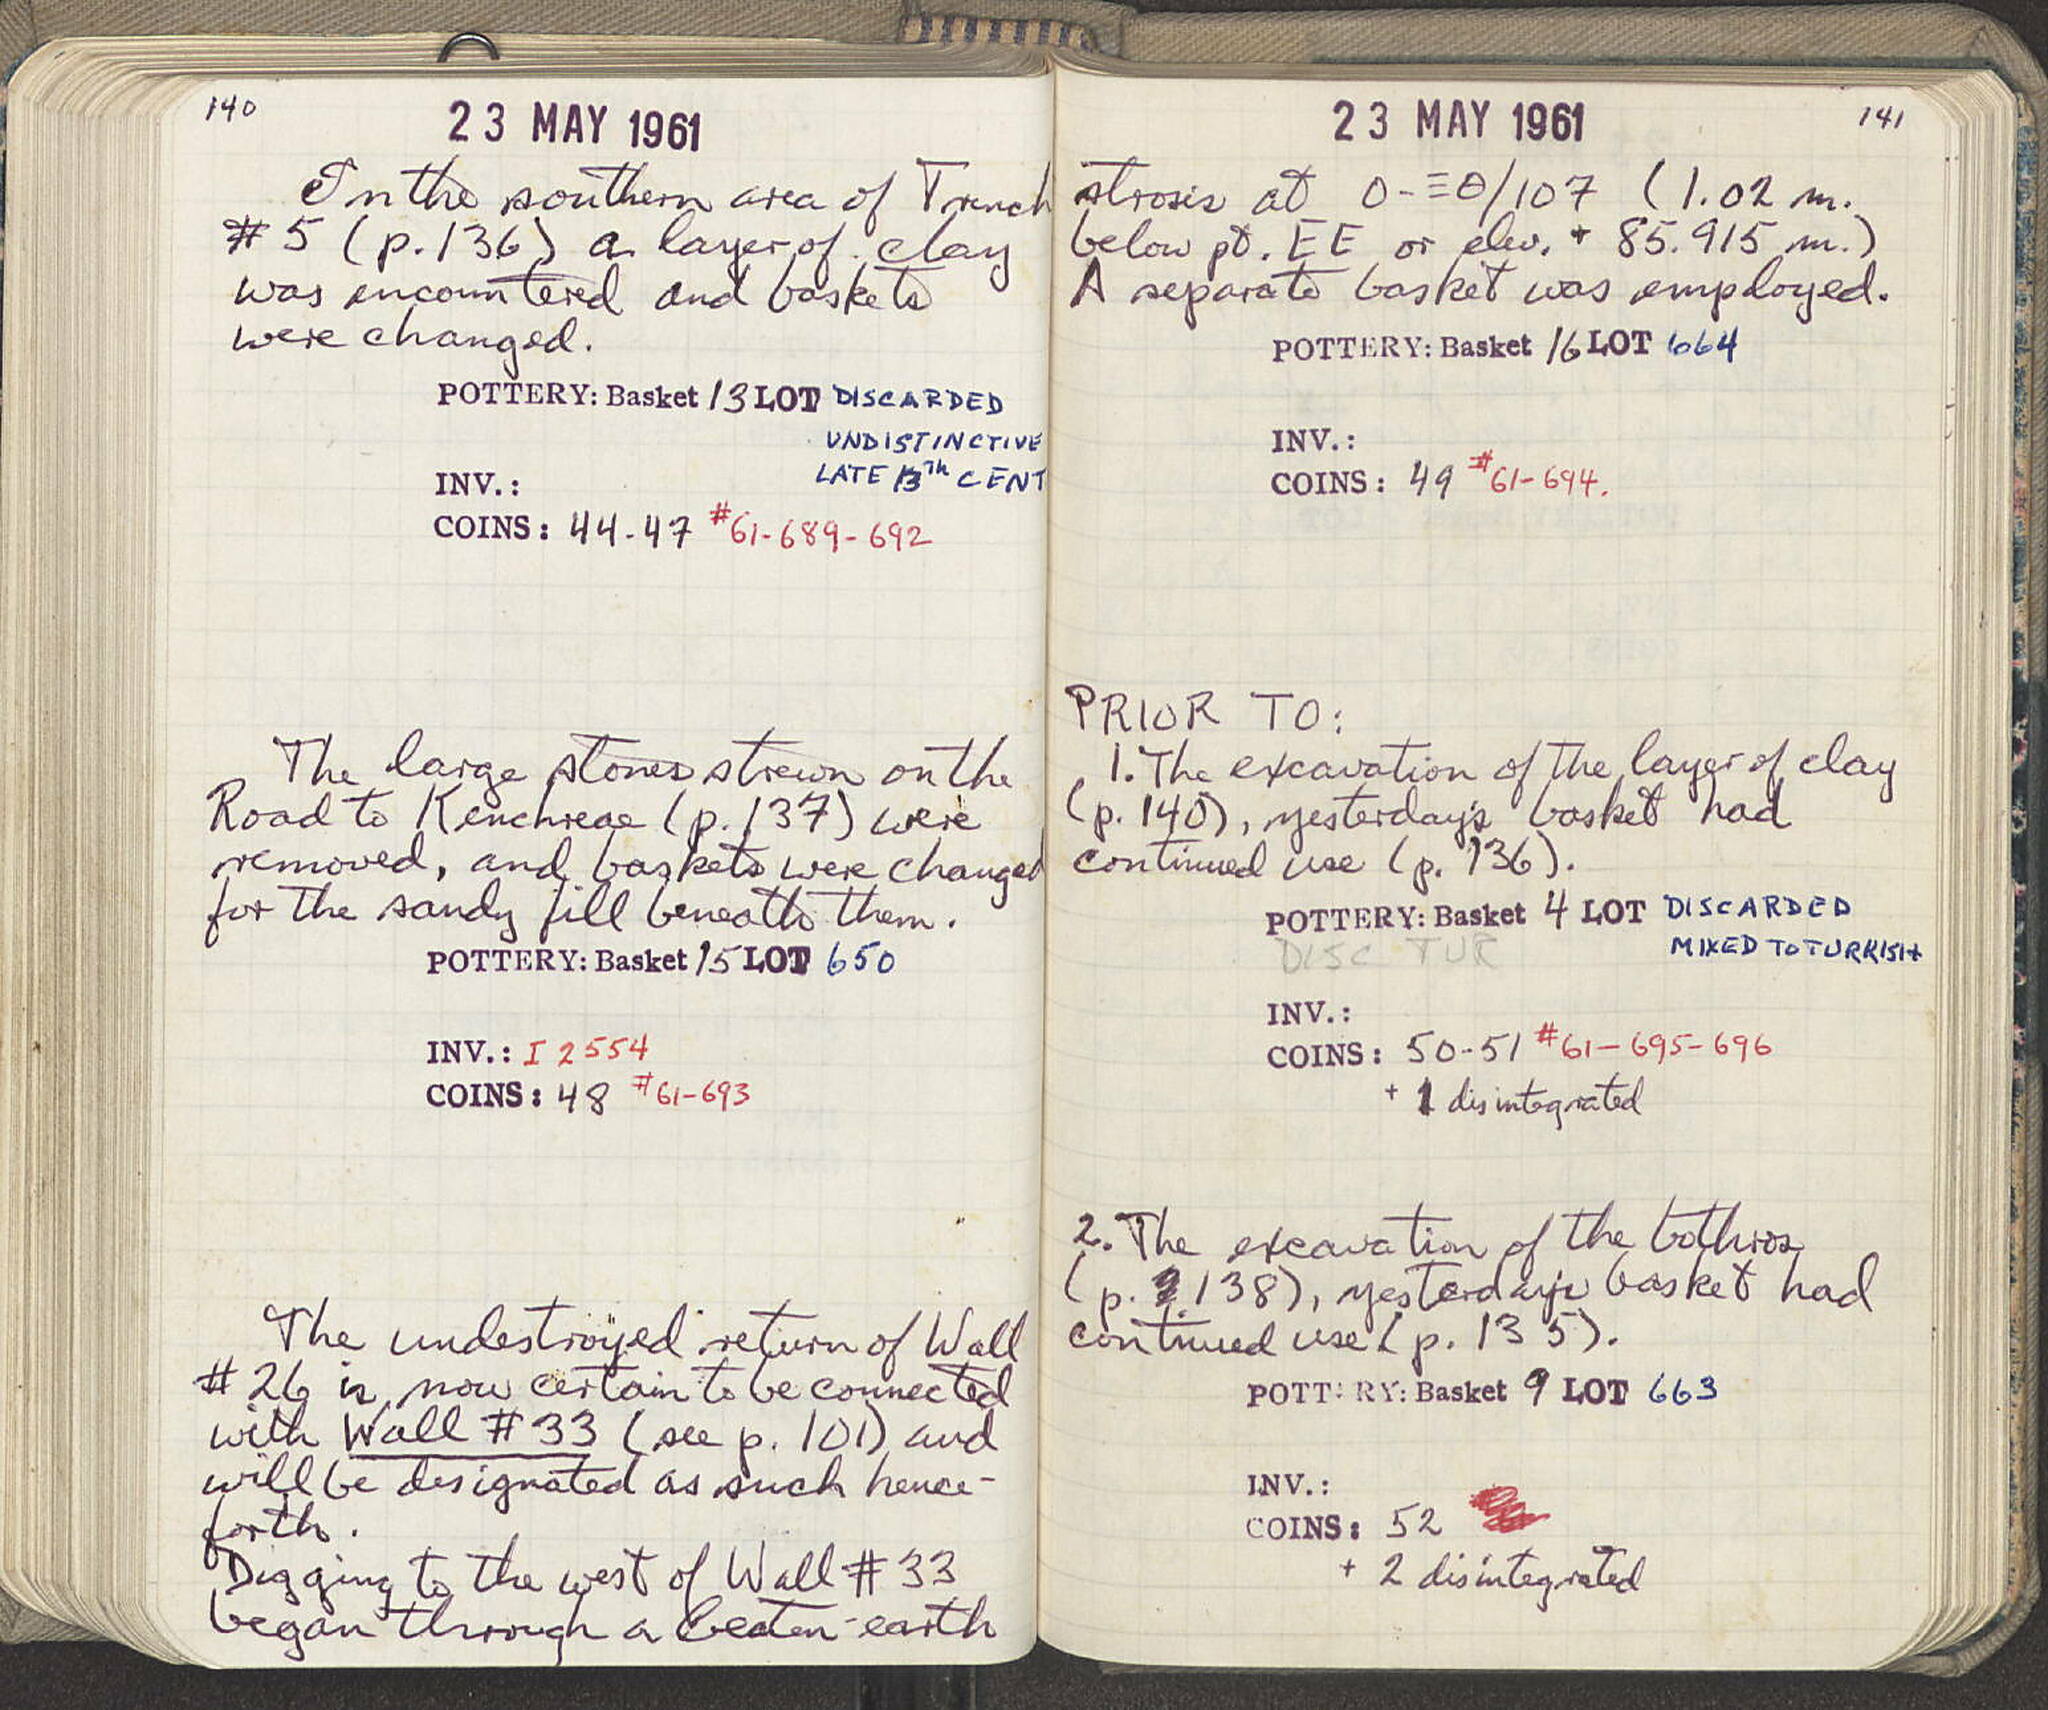 140
23 MAY 1961
In the southern area of Trench
# 5 (p. 136) a layer of clay
was encountered and baskets
were changed.
POTTERY: Basket 13 LOT DISCARDED
UNDISTINCTIVE
LATE 13th CENT
INV.:
COINS: 44-47 #61-689-692
The large stones strewn on the
Road to Kenchreae (p. 137) were
removed, and baskets were changed
for the sandy fill beneath them.
POTTERY: Basket 15 LOT 650
INV.: I 2554
COINS: 48 #61-693
The undestroyed return of Wall
# 26 is now certain to be connected
with Wall # 33 (see p. 101) and
will be designated as such hence-
forth.
Digging to the west of Wall # 33
began through a beaten-earth
23 MAY 1961
141
strosis at O-ΞΘ/107 (1.02 m.
below pt. EE or elev. + 85.915 m.)
A separate basket was employed.
POTTERY: Basket 16 LOT 664
INV.:
COINS: 49 #61-694.
PRIOR TO:
1. The excavation of the layer of clay
(p. 140), yesterday's basket had
continued use (p. 136).
POTTERY: Basket 4 LOT DISCARDED
MIXED TO TURKISH
DISC TUR
INV.:
COINS: 50-51 #61-695-696
+ 1 disintegrated
2. The excavation of the bothros
(p. 138), yesterday's basket had
continued use (p. 135).
POTTERY: Basket 9 LOT 663
INV.:
COINS: 52
+ 2 disintegrated